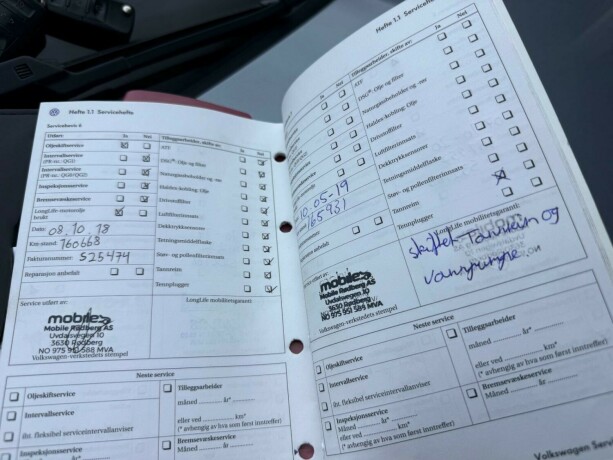 Hefte 1.1 Servicehefte
Servicebevis 6
Utført: Ja Nei
Oljeskiftservice
Intervallservice
Intervallservice
Inspeksjonsservice
Bremsevæskeservice
LongLife motorolje
brukt
Dato: 08.10.18
Km-stand: 160668
Fakturanummer: 525474
Reparasjon anbefalt
Tilleggsarbeider, skifte av: Ja Nei
ATF
DSG®: Olje og filter
Haldex kobling: Olje
Drivstoffilter
Luftfilterinnsats
Dekktrykksensorer
Tetningsmiddelflaske
Støv- og pollenfilterinnsats
Tannreim
Tennplugger
Service utført av:
LongLife mobilitetsgaranti:
mobile
Mobile Rødberg AS
Uvdalsvegen 10
3630 Rødberg
NO 975 951 588 MVA
Volkswagen-verkstedets stempel
Neste service
Oljeskiftservice
Intervallservice
iht. fleksibel serviceintervallanviser
Inspeksjonsservice
Tilleggsarbeider
Måned år
eller ved km*
(* avhengig av hva som først inntreffer)
Bremsevæskeservice
Måned år
Hefte 1.1 Servicehefte
Ja Nei
Tilleggsarbeider, skifte av: Ja Nei
ATF
DSG®: Olje og filter
Haldex kobling: Olje
Drivstoffilter
Luftfilterinnsats
Dekktrykksensorer
Tetningsmiddelflaske
Støv- og pollenfilterinnsats
Tannreim
Tennplugger
10.05-19
165931
anbefalt
LongLife mobilitetsgaranti:
skiftet Tannreim og
vannpumpe.
utført av:
mobile
Mobile Rødberg AS
Uvdalsvegen 10
3630 Rødberg
NO 975 951 588 MVA
Volkswagen-verkstedets stempel
Neste service
Oljeskiftservice
Intervallservice
iht. fleksibel serviceintervallanviser
Inspeksjonsservice
Måned år
eller ved km*
(* avhengig av hva som først inntreffer)
Tilleggsarbeider
måned år
eller ved km*
(* avhengig av hva som først inntreffer)
Bremsevæskeservice
Måned år
Volkswagen